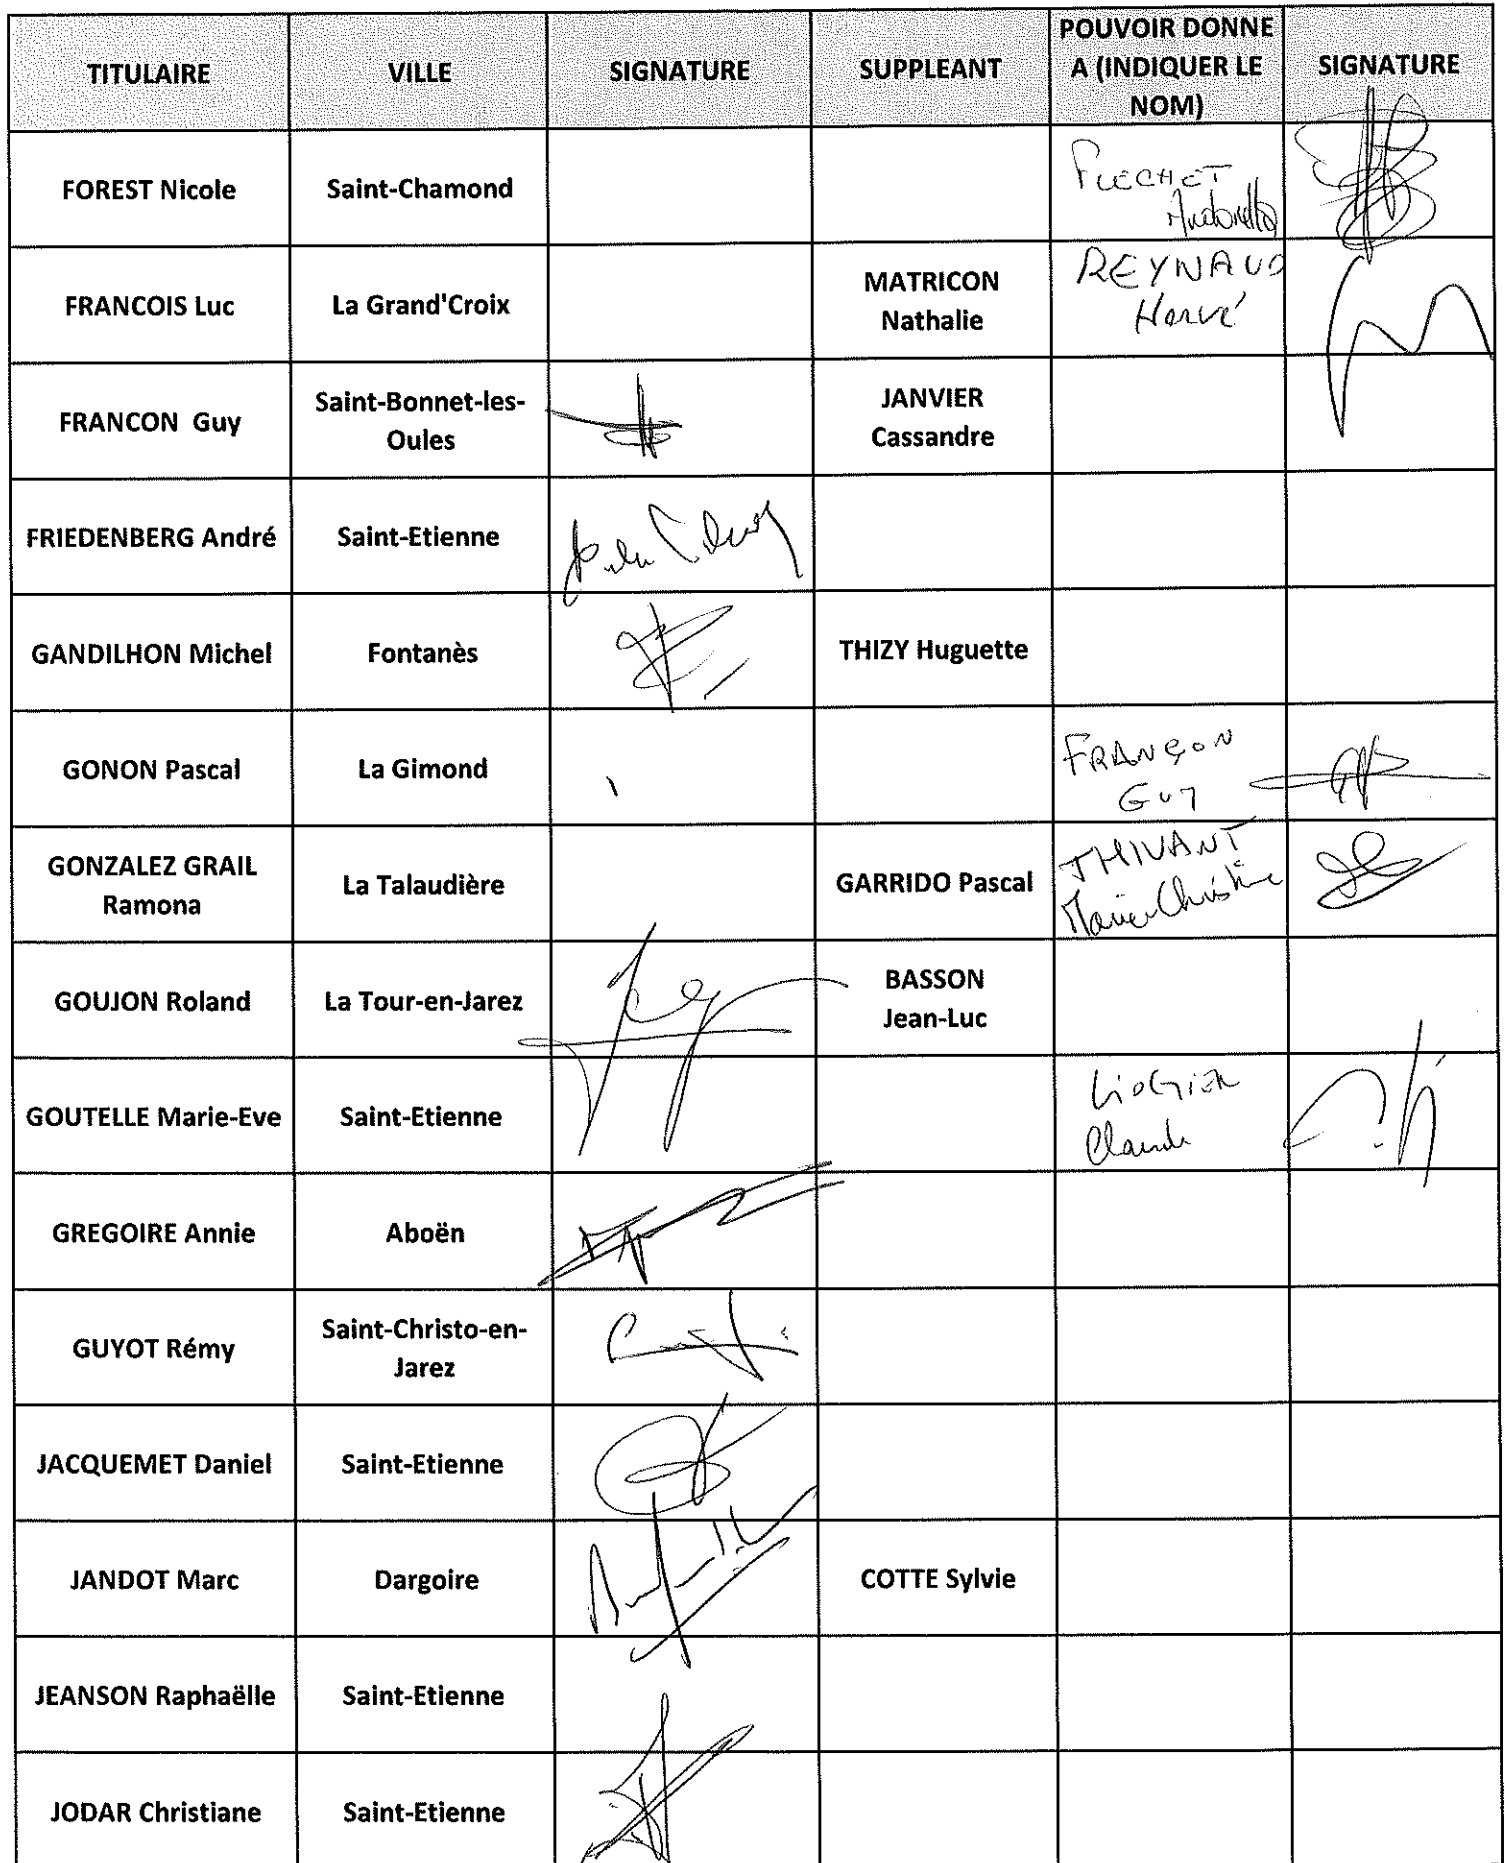 TITULAIRE VILLE SIGNATURE SUPPLEANT POUVOIR DONNE A (INDIQUER LE NOM) SIGNATURE
FOREST Nicole Saint-Chamond FLECHET
FRANCOIS Luc La Grand'Croix MATRICON Nathalie REYNAUD Hervé
FRANCON Guy Saint-Bonnet-les-Oules JANVIER Cassandre
FRIEDENBERG André Saint-Etienne
GANDILHON Michel Fontanès THIZY Huguette
GONON Pascal La Gimond FRANÇON GUY
GONZALEZ GRAIL Ramona La Talaudière GARRIDO Pascal THIVANT Marie-Christine
GOUJON Roland La Tour-en-Jarez BASSON Jean-Luc
GOUTELLE Marie-Eve Saint-Etienne LIOGIER Claude
GREGOIRE Annie Aboën
GUYOT Rémy Saint-Christo-en-Jarez
JACQUEMET Daniel Saint-Etienne
JANDOT Marc Dargoire COTTE Sylvie
JEANSON Raphaëlle Saint-Etienne
JODAR Christiane Saint-Etienne